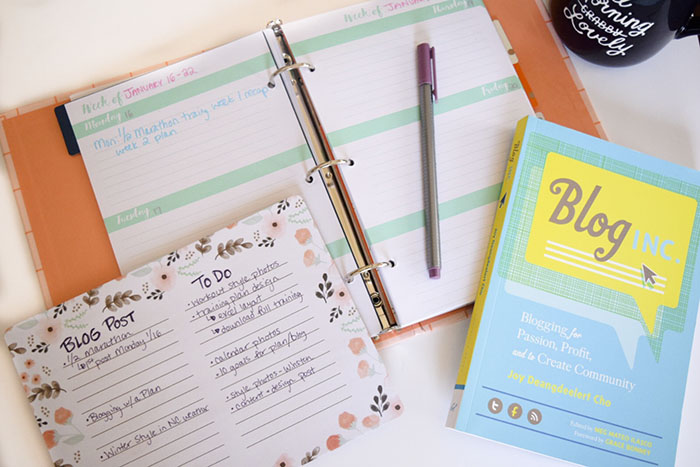 Week of JANUARY 16-22
Monday 16
Mon: 1/2 Marathon training week 1 recap
week 2 plan
Tuesday 17
Week of JANUARY
Thursday
Friday
BLOG POST
1/2 marathon
1st post Monday 1/16
• Blogging w/ a Plan
• Winter Style in NC weather
TO DO
• workout style photos
• training plan design
excel layout
download full training
• calendar photos
• 10 goals for plan/blog
• style photos - Winston
• content + design post
Blog
Blog INC.
Blogging for
Passion, Profit,
and to Create Community
Joy Deangdeelert Cho
Edited by MEG MATEO ILASCO
Foreword by GRACE BONNEY
Morning
CRABBY
Lovely